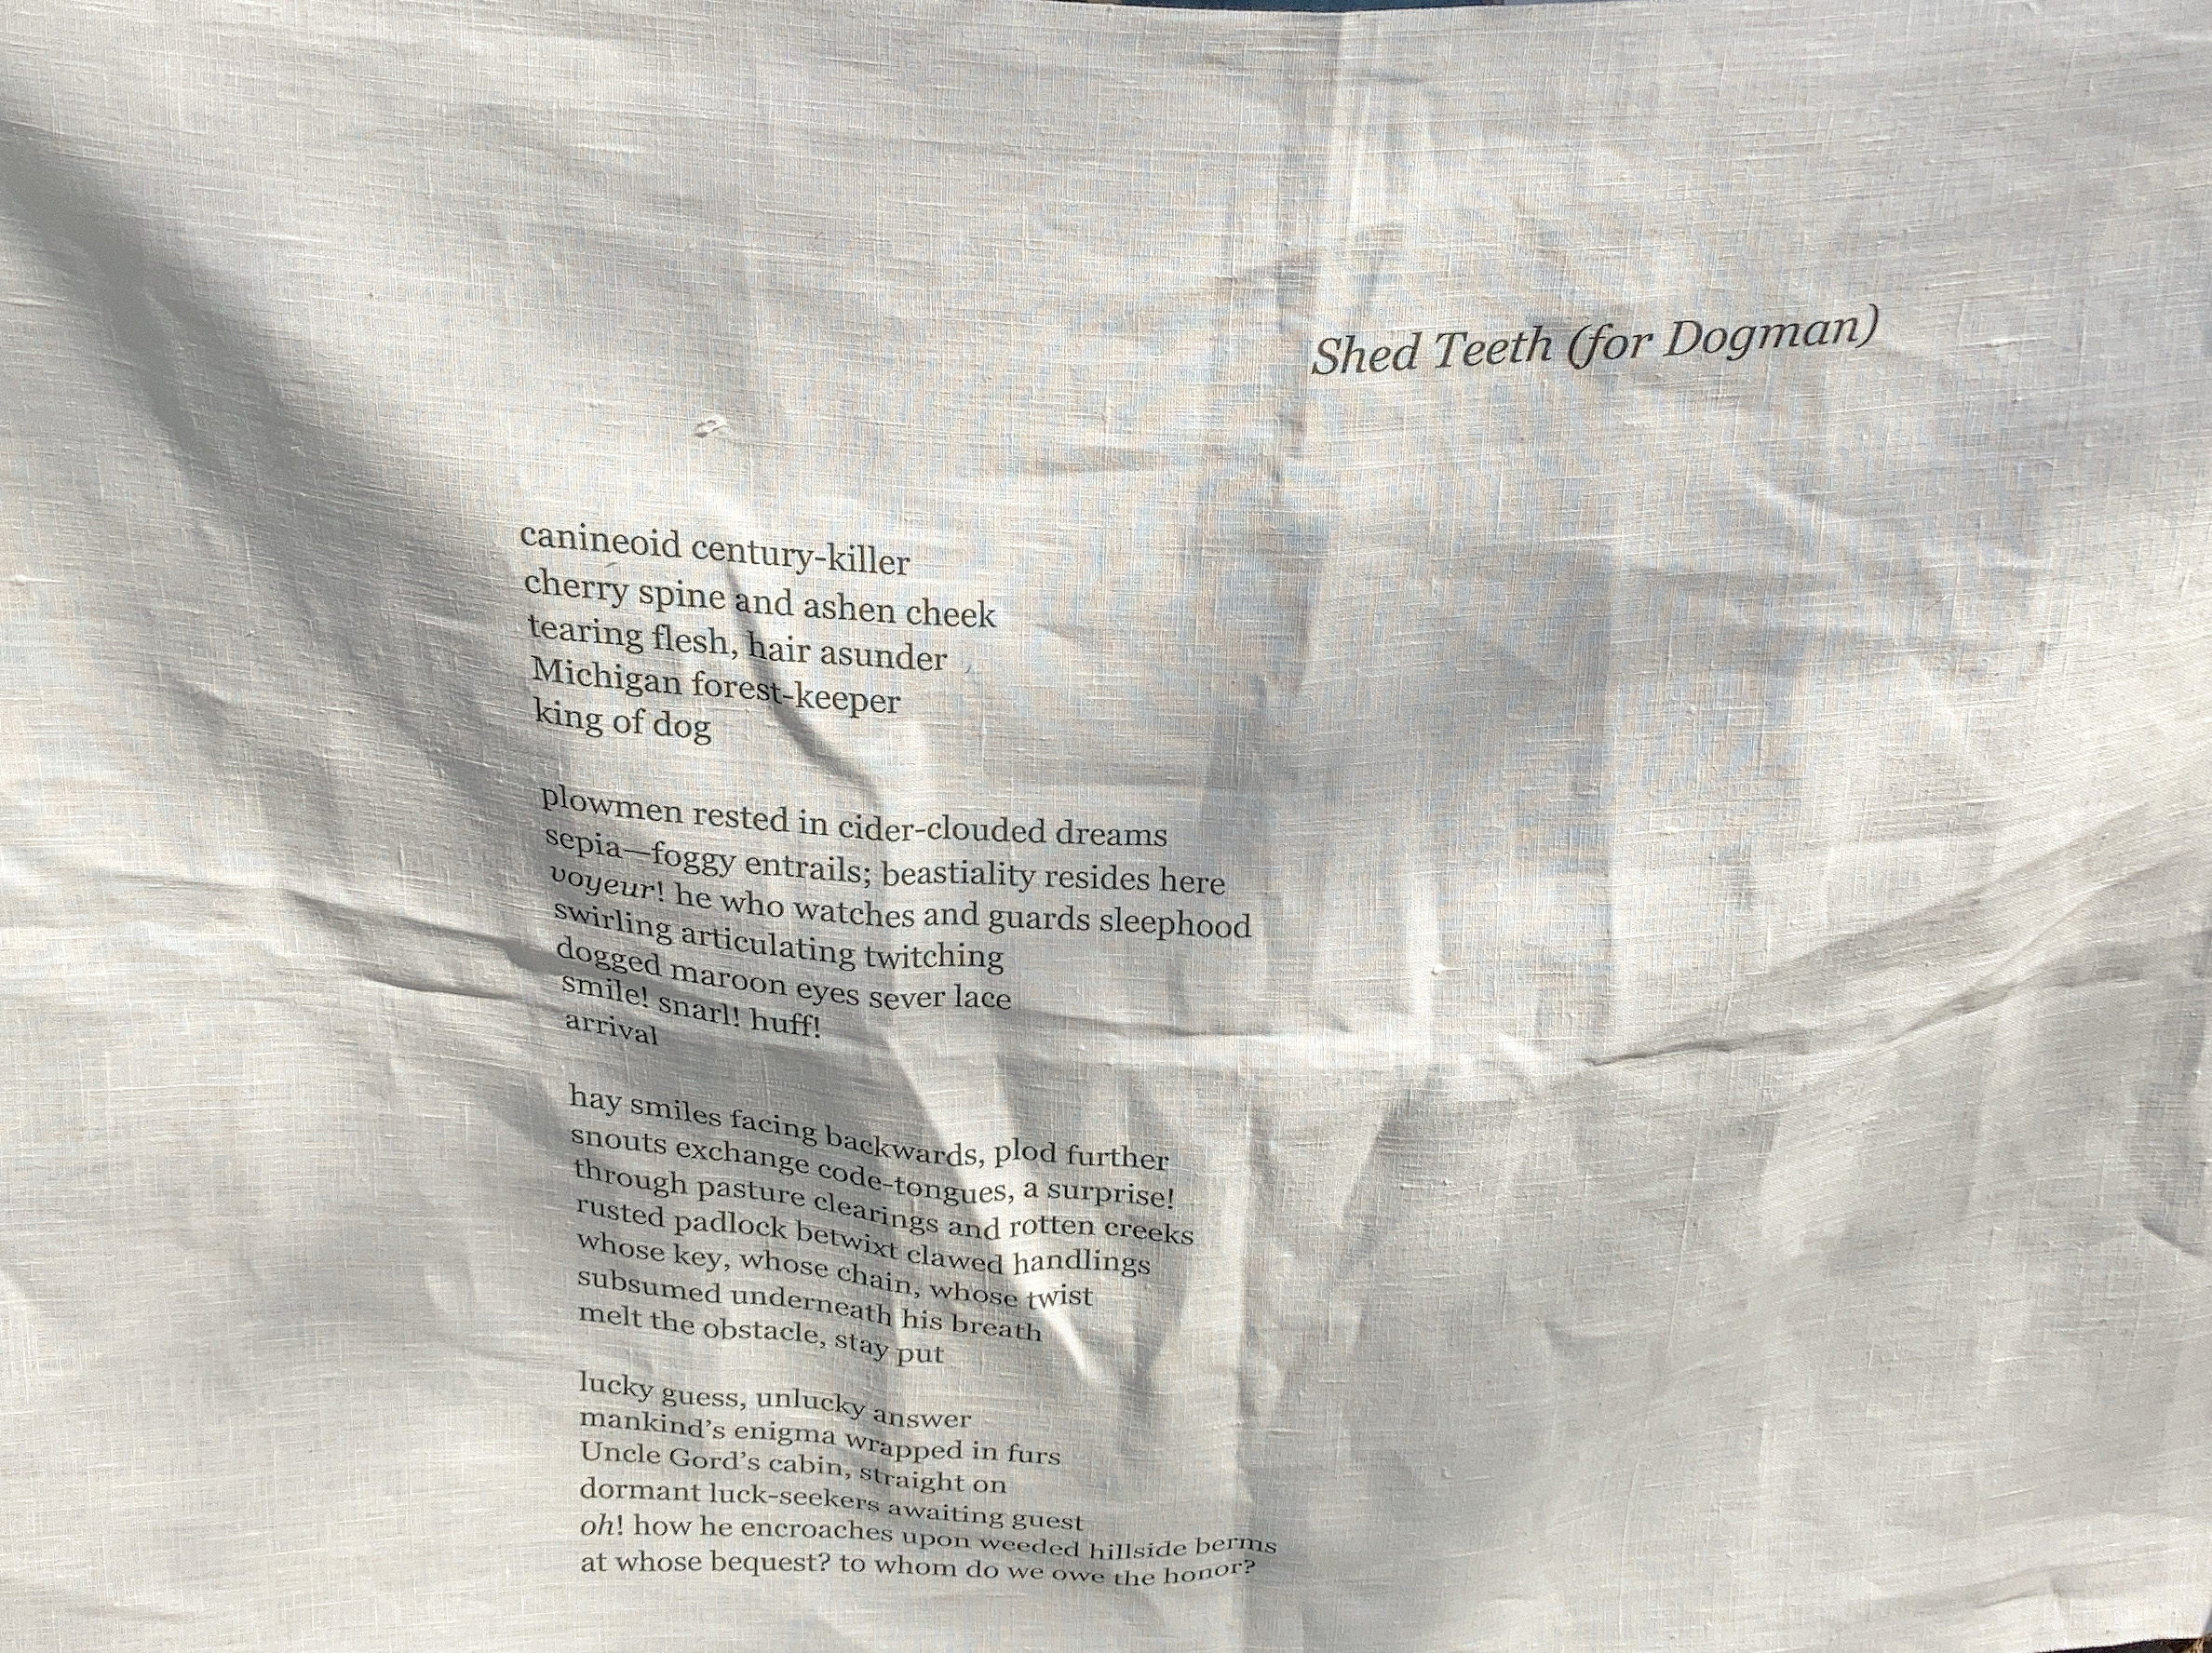 Shed Teeth (for Dogman)
canineoid century-killer
cherry spine and ashen cheek
tearing flesh, hair asunder
Michigan forest-keeper
king of dog
plowmen rested in cider-clouded dreams
sepia—foggy entrails; beastiality resides here
voyeur! he who watches and guards sleephood
swirling articulating twitching
dogged maroon eyes sever lace
smile! snarl! huff!
arrival
hay smiles facing backwards, plod further
snouts exchange code-tongues, a surprise!
through pasture clearings and rotten creeks
rusted padlock betwixt clawed handlings
whose key, whose chain, whose twist
subsumed underneath his breath
melt the obstacle, stay put
lucky guess, unlucky answer
mankind's enigma wrapped in furs
Uncle Gord's cabin, straight on
dormant luck-seekers awaiting guest
oh! how he encroaches upon weeded hillside berms
at whose bequest? to whom do we owe the honor?